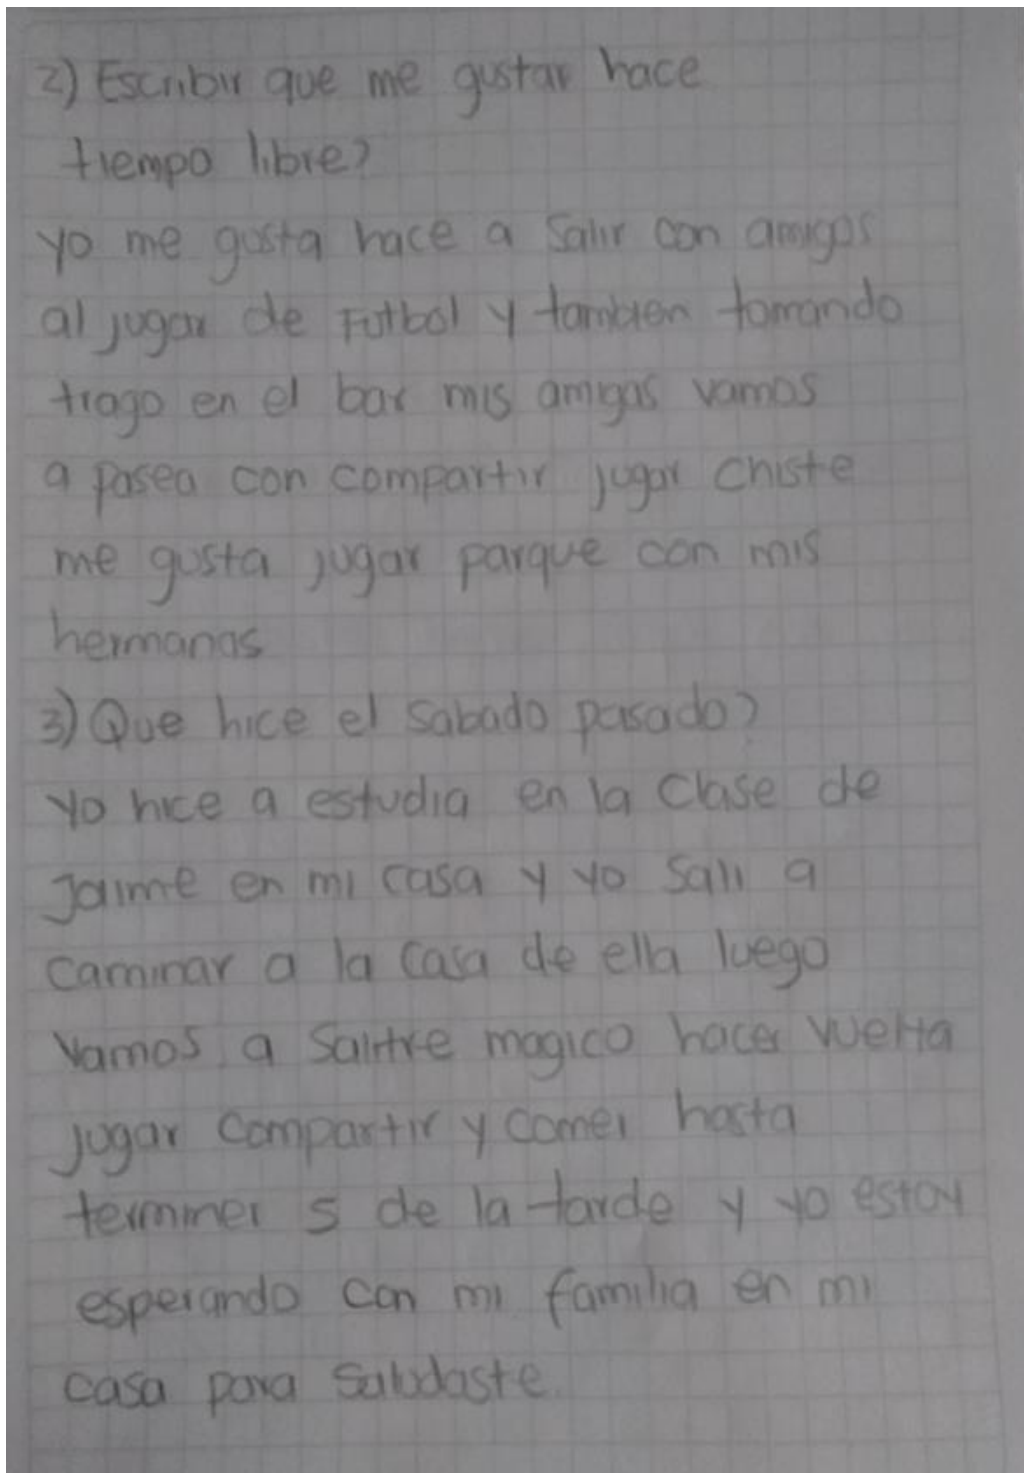 2) Escribir que me gustar hace
tiempo libre?
yo me gusta hace a salir con amigos
al jugar de Futbol y tambien tomando
trago en el bar mis amigas vamos
a pasea con compartir jugar chiste
me gusta jugar parque con mis
hermanas
3) Que hice el sabado pasado?
yo hice a estudia en la clase de
Jaime en mi casa y yo sali a
caminar a la casa de ella luego
vamos a Salitre magico hacer vuelta
jugar compartir y comer hasta
terminer 5 de la tarde y yo estoy
esperando con mi familia en mi
casa para saludaste.